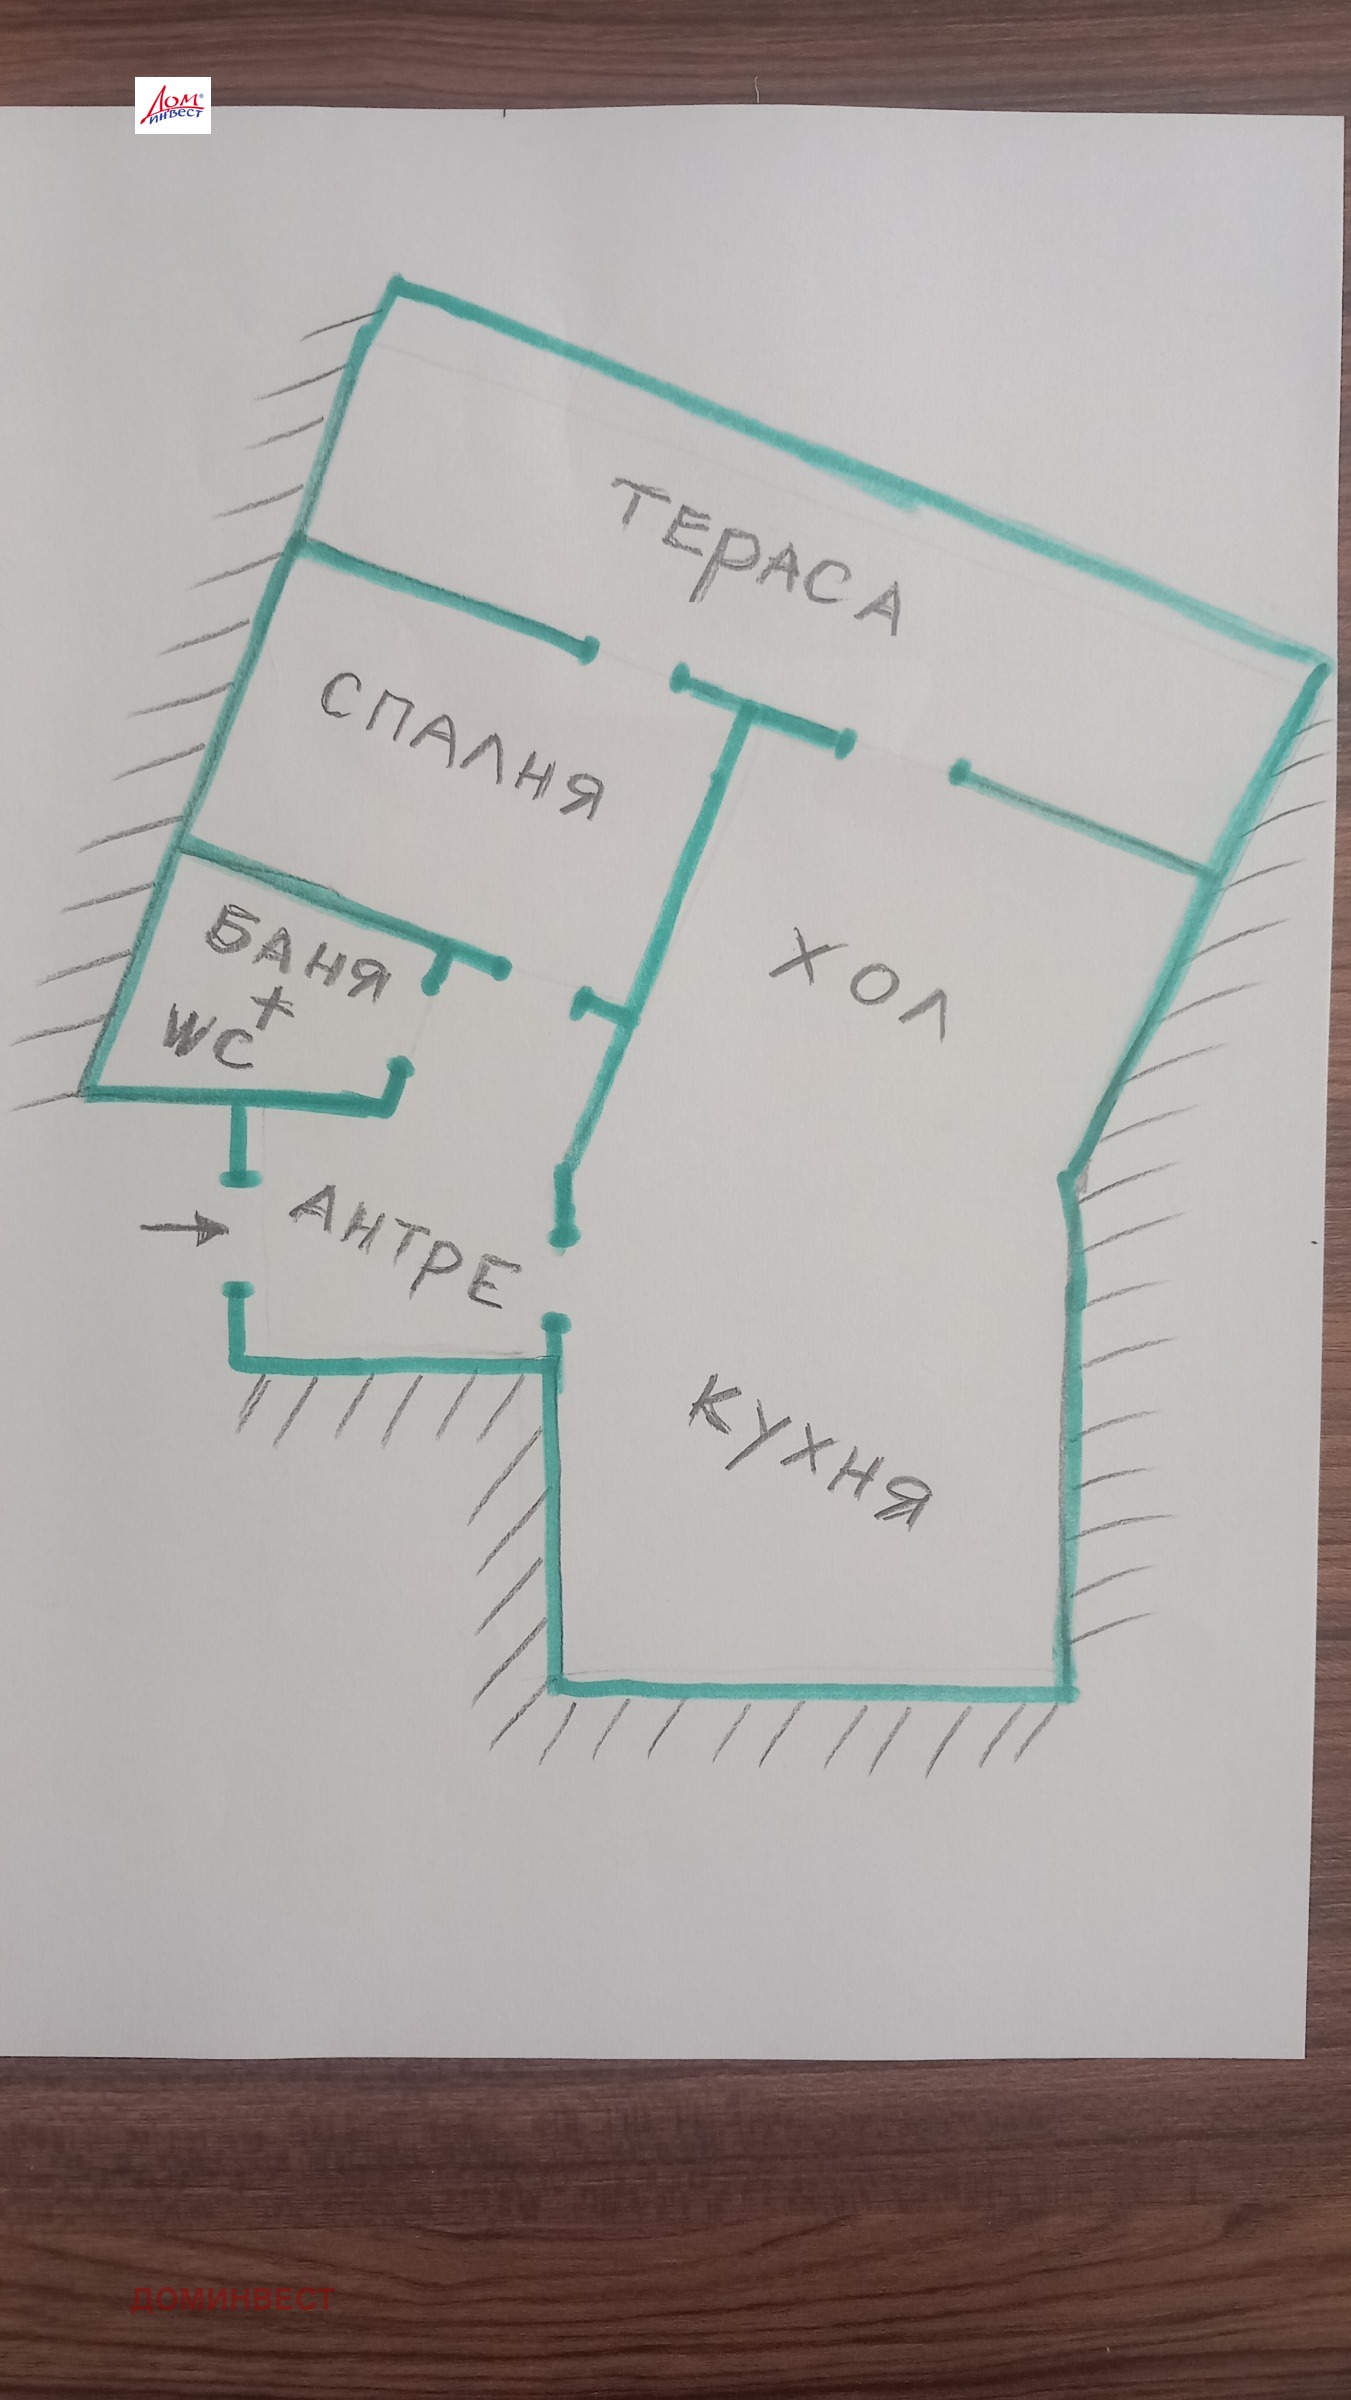 Дом®
инвест
ТЕРАСА
СПАЛНЯ
БАНЯ
+
WC
ХОЛ
АНТРЕ
КУХНЯ
ДОМИНВЕСТ